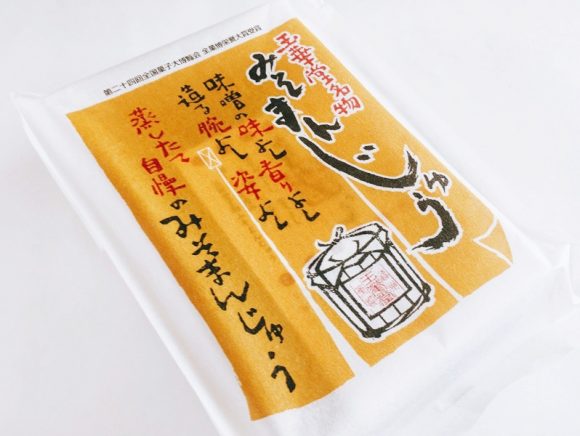 第二十四回全国菓子大博覧会 全菓博栄誉大賞受賞
玉華堂名物
みそまんじゅう
味噌の味よし香りよし
造る腕よし 姿よし
蒸したて
自慢のみそまんじゅう
玉華堂